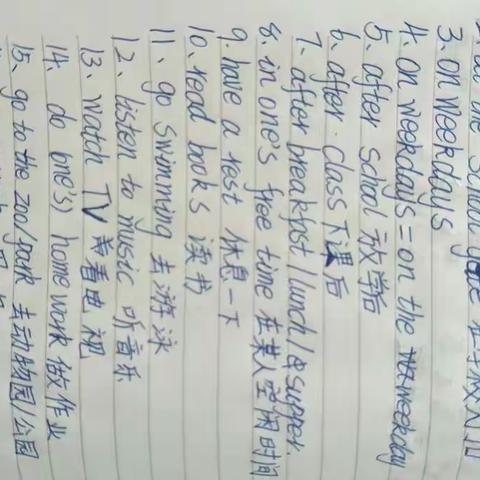 at the school gate 在学校大门
3. on weekdays
4. on weekdays = on the weekday
5. after school 放学后
6. after class 下课后
7. after breakfast / lunch / supper.
8. in one's free time 在某人空闲时间
9. have a rest 休息一下
10. read books 读书
11、go swimming 去游泳
12、listen to music 听音乐
13、watch TV 看电视
14、do (one's) homework 做作业
15、go to the zoo/park 去动物园/公园